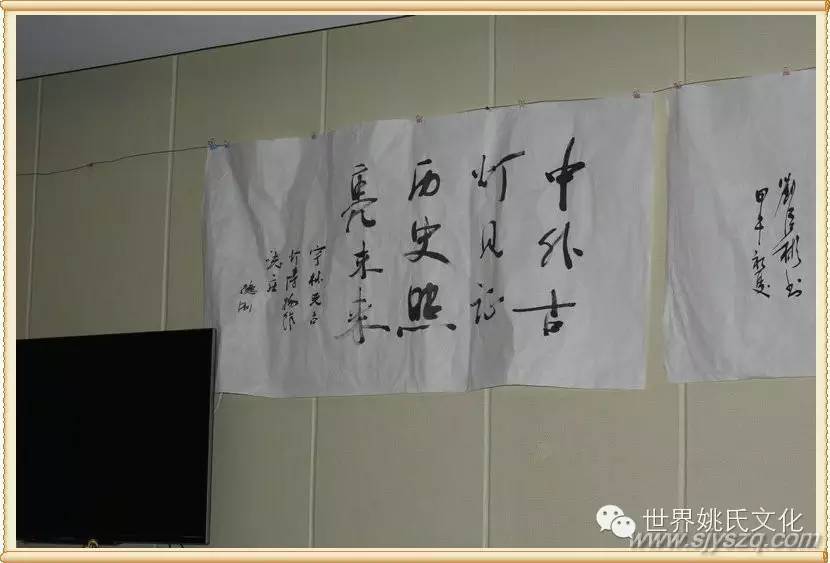 中外古
灯见证
历史照
亮未来
宁林先生
灯博物馆
甲午初夏
世界姚氏文化
www.sjyszq.com